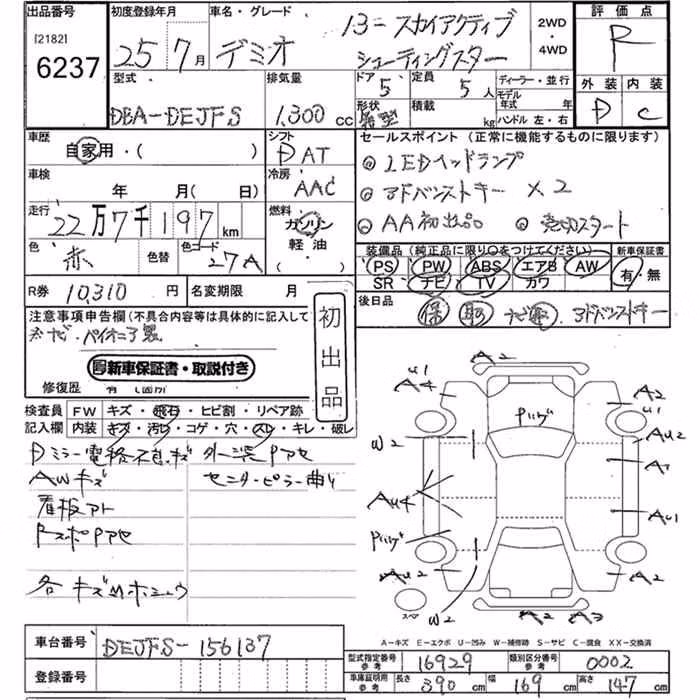 出品番号
[2182]
6237
初度登録年月
25年7月
車名・グレード
デミオ
13- スカイアクティブ
シューティングスター
2WD
・
4WD
評価点
R
外装 内装
D C
型式
DBA-DEJFS
排気量
1,300 cc
ドア
5
定員
5人
形状
積載
kg
ディーラー・並行
モデル
年式 年
ハンドル 左・右
車歴
自家用・( )
車検
年 月( 日)
走行
22万7千197km
色
赤
色替
色コード
27A
シフト
DAT
冷房
AAC
燃料
ガソリン
軽油
( )
セールスポイント (正常に機能するものに限ります)
LEDヘッドランプ
アドバンストキー ×2
AA初出品
装備品(純正品に限り○をつけてください)
新車保証書
PS PW ABS エアB AW
SR ナビ TV カワ
有・無
R券 10,310 円
名変期限 月
後日品
保 取 ナビ取 アドバンストキー
注意事項申告欄(不具合内容等は具体的に記入して
ナビ・パイオニア製
新車保証書・取説付き
修復歴
初出品
検査員
記入欄
FW キズ・飛石・ヒビ割・リペア跡
内装 キズ・汚レ・コゲ・穴・スレ・キレ・破レ
AWキズ
看板アト
センターピラー曲り
A2
U1
A4
A2
U1
W2
AU2
パリング
A1
AU4
AU1
パリング
AU2
A2
W2
A2
A3
スペア
A-キズ E-エクボ U-凹み W-補修跡 S-サビ C-腐食 XX-交換済
車台番号
DEJFS-156137
登録番号
型式指定番号
参考
16929
類別区分番号
参考
0002
車庫証明用
参考
長さ 390 cm 幅 169 cm 高さ 147 cm